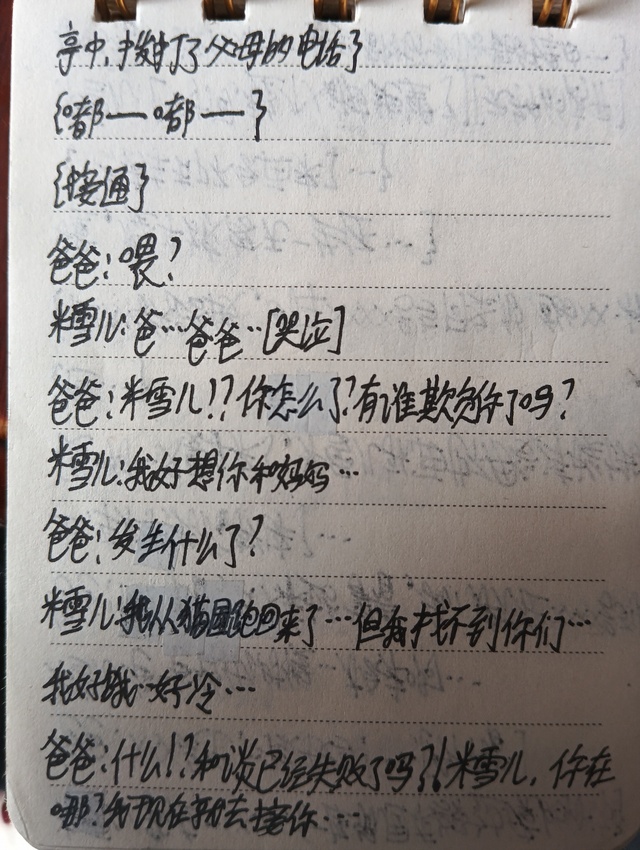 亭中，拨打了父母的电话}
{嘟——嘟——}
{接通}
爸爸：喂？
米雪儿：爸…爸爸…[哭泣]
爸爸：米雪儿！？你怎么了？有谁欺负你了吗？
米雪儿：我好想你和妈妈…
爸爸：发生什么了？
米雪儿：我从猫国跑回来了…但我找不到你们…
我好饿…好冷…
爸爸：什么！？和谈已经失败了吗？！米雪儿，你在
哪？我现在就去接你…